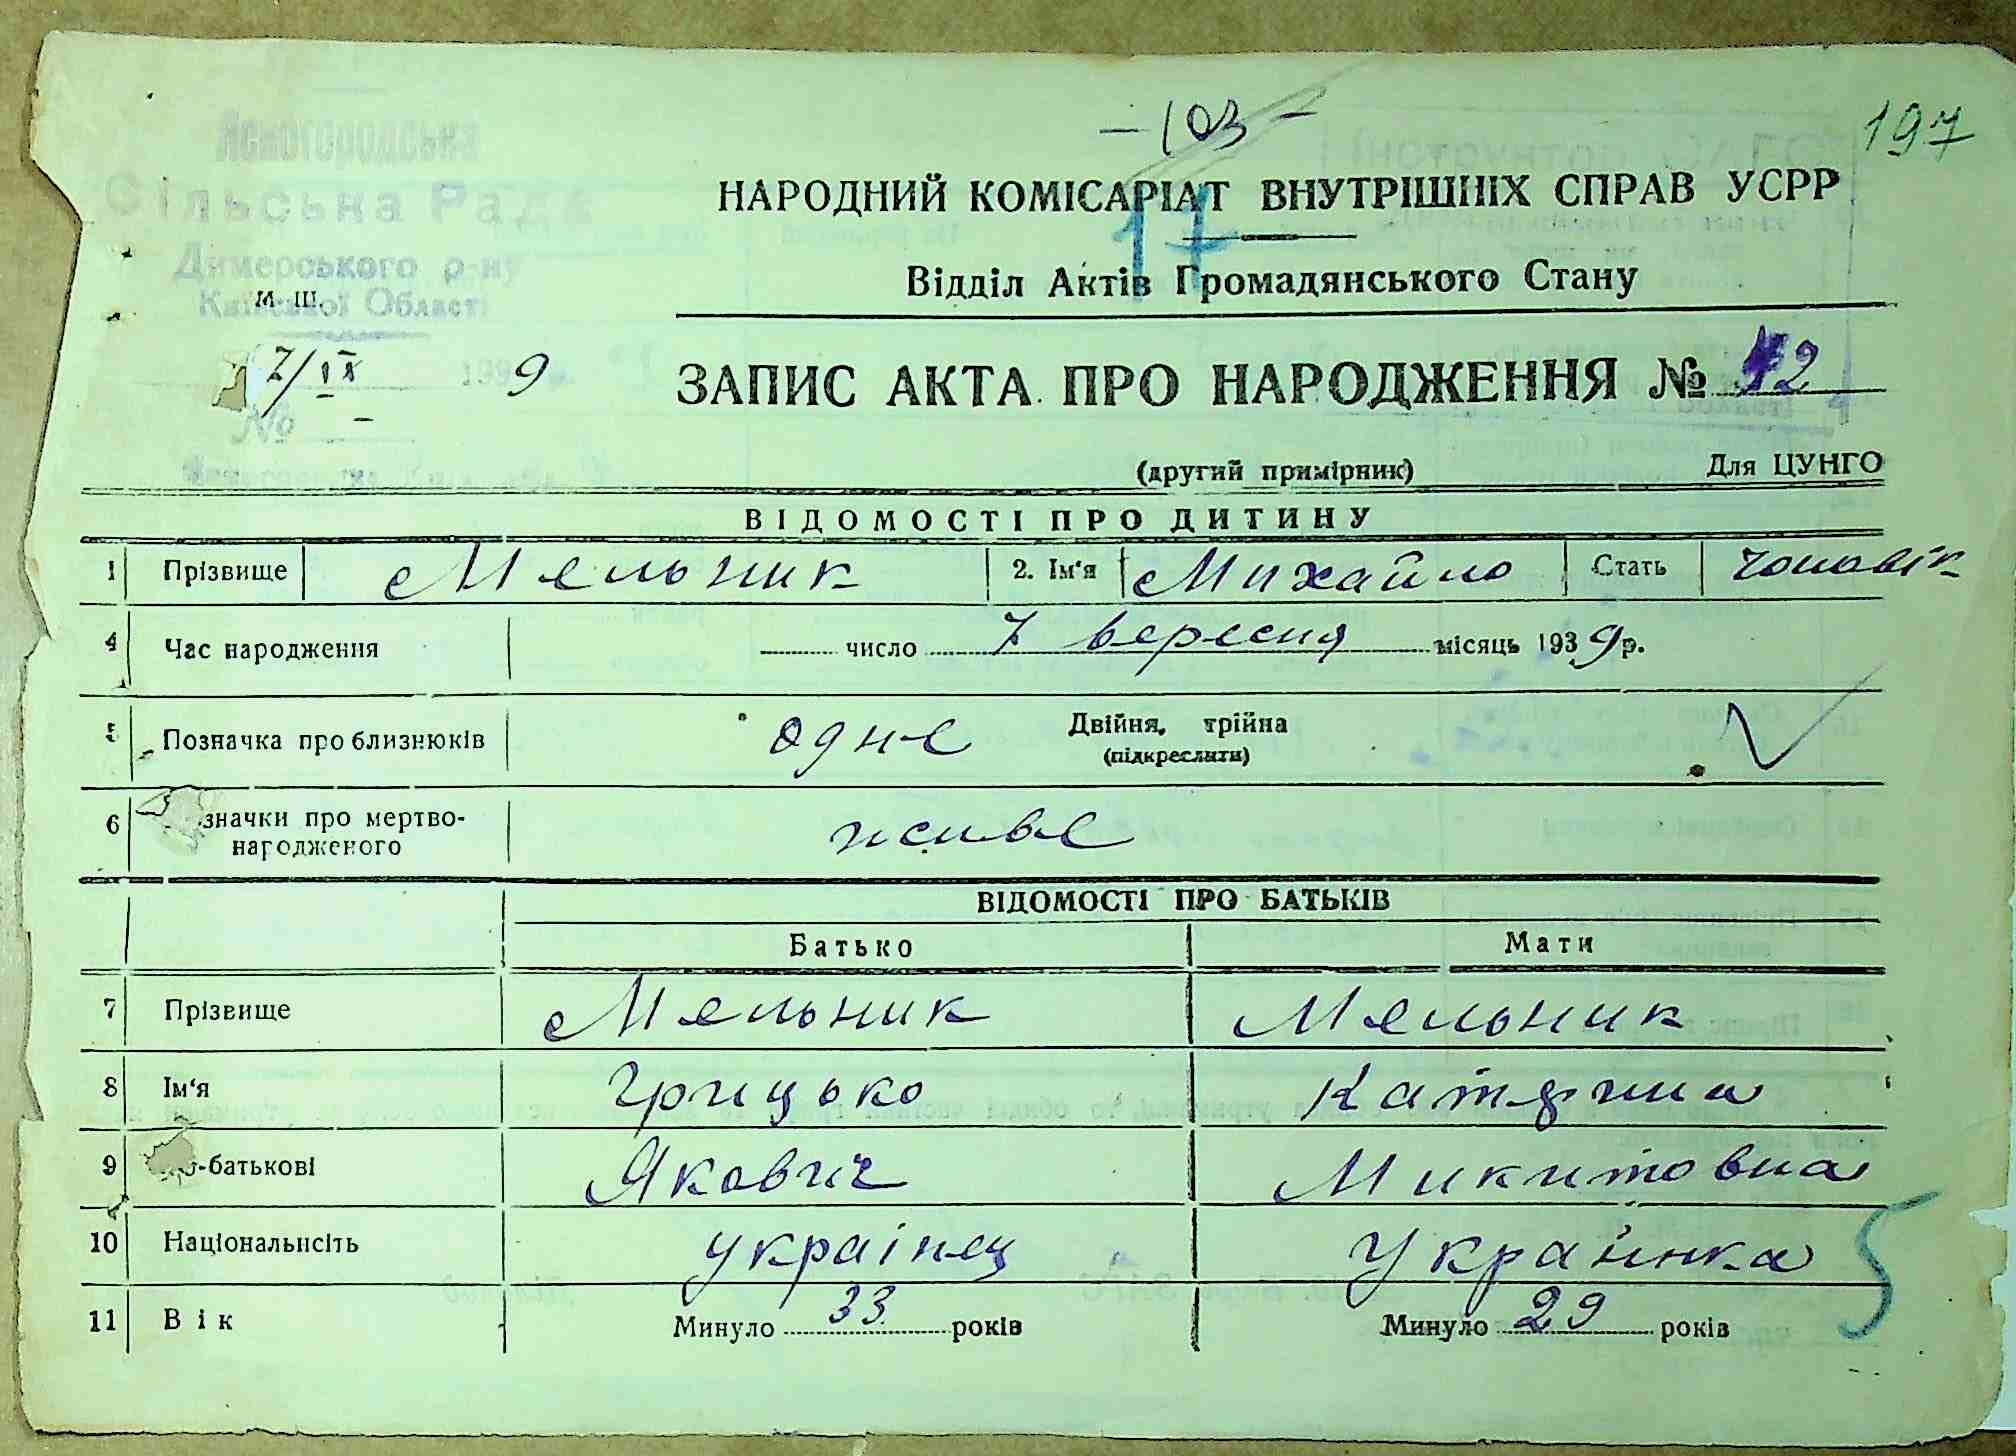 197
- 103 -
Ясногородська
Сільська Рада
Димерського р-ну
Київської Області
М. Ш.
7/IX 1939
№ -
НАРОДНИЙ КОМІСАРІАТ ВНУТРІШНІХ СПРАВ УСРР
17
Відділ Актів Громадянського Стану
ЗАПИС АКТА ПРО НАРОДЖЕННЯ № 42
(другий примірник) Для ЦУНГО
ВІДОМОСТІ ПРО ДИТИНУ
1 Прізвище Мельник 2. Ім'я Михайло Стать чоловік
4 Час народження число 7 вересня місяць 1939 р.
5 Позначка про близнюків одне Двійня, трійна
(підкреслити)
6 значки про мертво-
народженого живе
ВІДОМОСТІ ПРО БАТЬКІВ
Батько Мати
7 Прізвище Мельник Мельник
8 Ім'я Грицько Катерина
9 о-батькові Якович Микитовна
10 Національність українец Українка
5
11 Вік Минуло 33 років Минуло 29 років